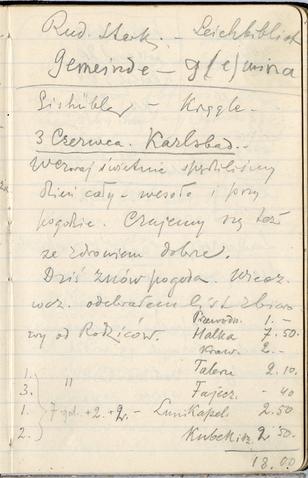 Rud. Sterk. – Leichbibliot
Gemeinde – g(e)mina
Gishübler – Koggle.
3 Czerwca. Karlsbad.
Wczoraj świetnie spędziliśmy
dzień cały – wesoło i przy
pogodzie. Czujemy się też
ze zdrowiem dobrze.
Dziś znów pogoda. Wiecz
wcz. odebrałem list zbioro
wy od Rodziców.
Przewodn. 1.–
Halka 7.50.
Kraw. 2.–
1. Talerz 2.10.
3. " Fajecz. – 40
1. 7 gul. +2.+2.– Lunikapel 2.50
2. Kubek 2.50.
18.00